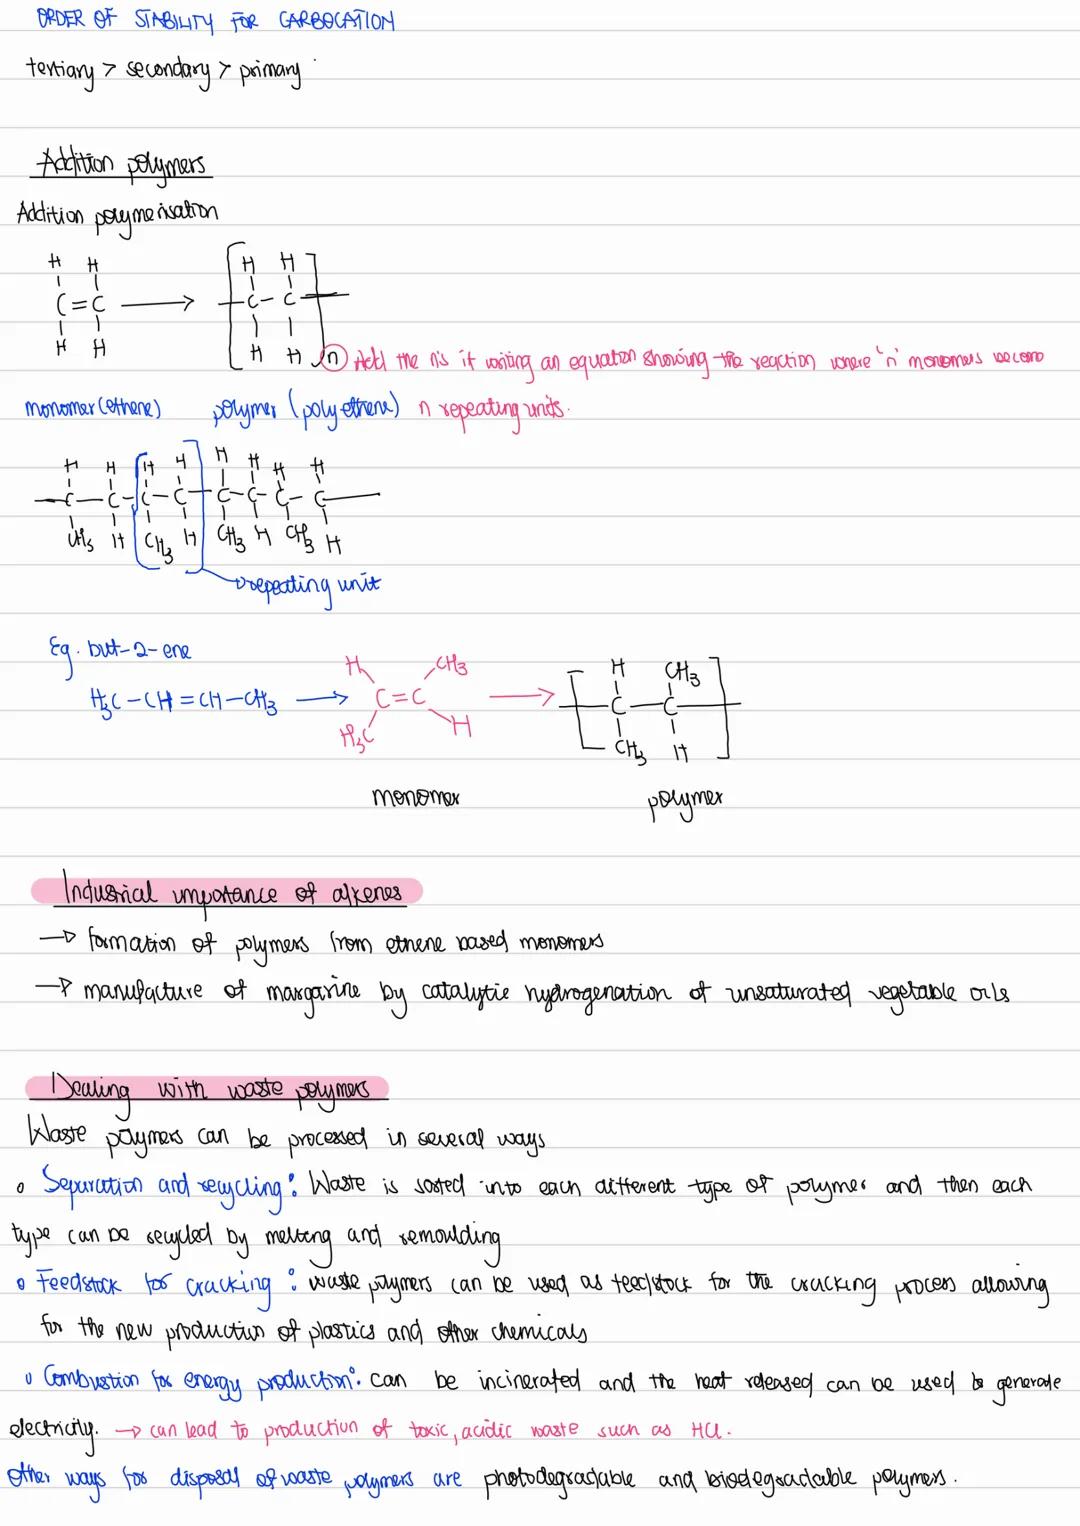 ORDER OF STABILITY FOR CARBOCATION
tertiary > secondary > primary
Addition polymers
Addition polymerisation
H H
C=C
H H
H H
C-C
H H n Add the n's if writing an equation showing the reaction where 'n' monomers become
monomer (ethene) polymer (polyethene) n repeating units.
H H H H H H H H
C-C-C-C-C-C-C-C
CH3 H CH3 H CH3 H CH3 H
repeating unit
Eg. but-2-ene
H3C-CH=CH-CH3
H CH3
C=C
H3C H
H CH3
C-C
CH3 H
monomer polymer
Industrial importance of alkenes
→ formation of polymers from ethene based monomers
→ manufacture of margarine by catalytic hydrogenation of unsaturated vegetable oils
Dealing with waste polymers
Waste polymers can be processed in several ways
Separation and recycling: Waste is sorted into each different type of polymer and then each
type can be recycled by melting and remoulding
Feedstock for cracking: waste polymers can be used as feedstock for the cracking process allowing
for the new production of plastics and other chemicals
Combustion for energy production: can be incinerated and the heat released can be used to generate
electricity. → can lead to production of toxic, acidic waste such as HCl.
Other ways for disposal of waste polymers are photodegradable and biodegradable polymers.